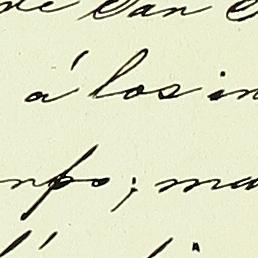 de San
á los in
mpo; ma